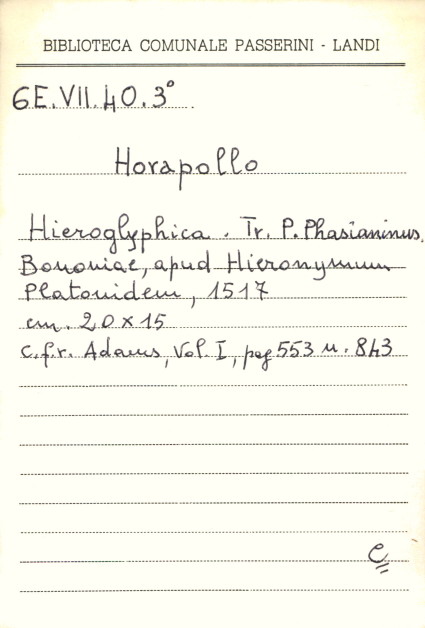 BIBLIOTECA COMUNALE PASSERINI - LANDI
6E.VII.40.3°
Horapollo
Hieroglyphica. Tr. P. Phasianinus.
Bononiae, apud Hieronymum
Platonidem, 1517
cm. 20 x 15
c.f.r. Adams, Vol. I, pag 553 n. 843
C